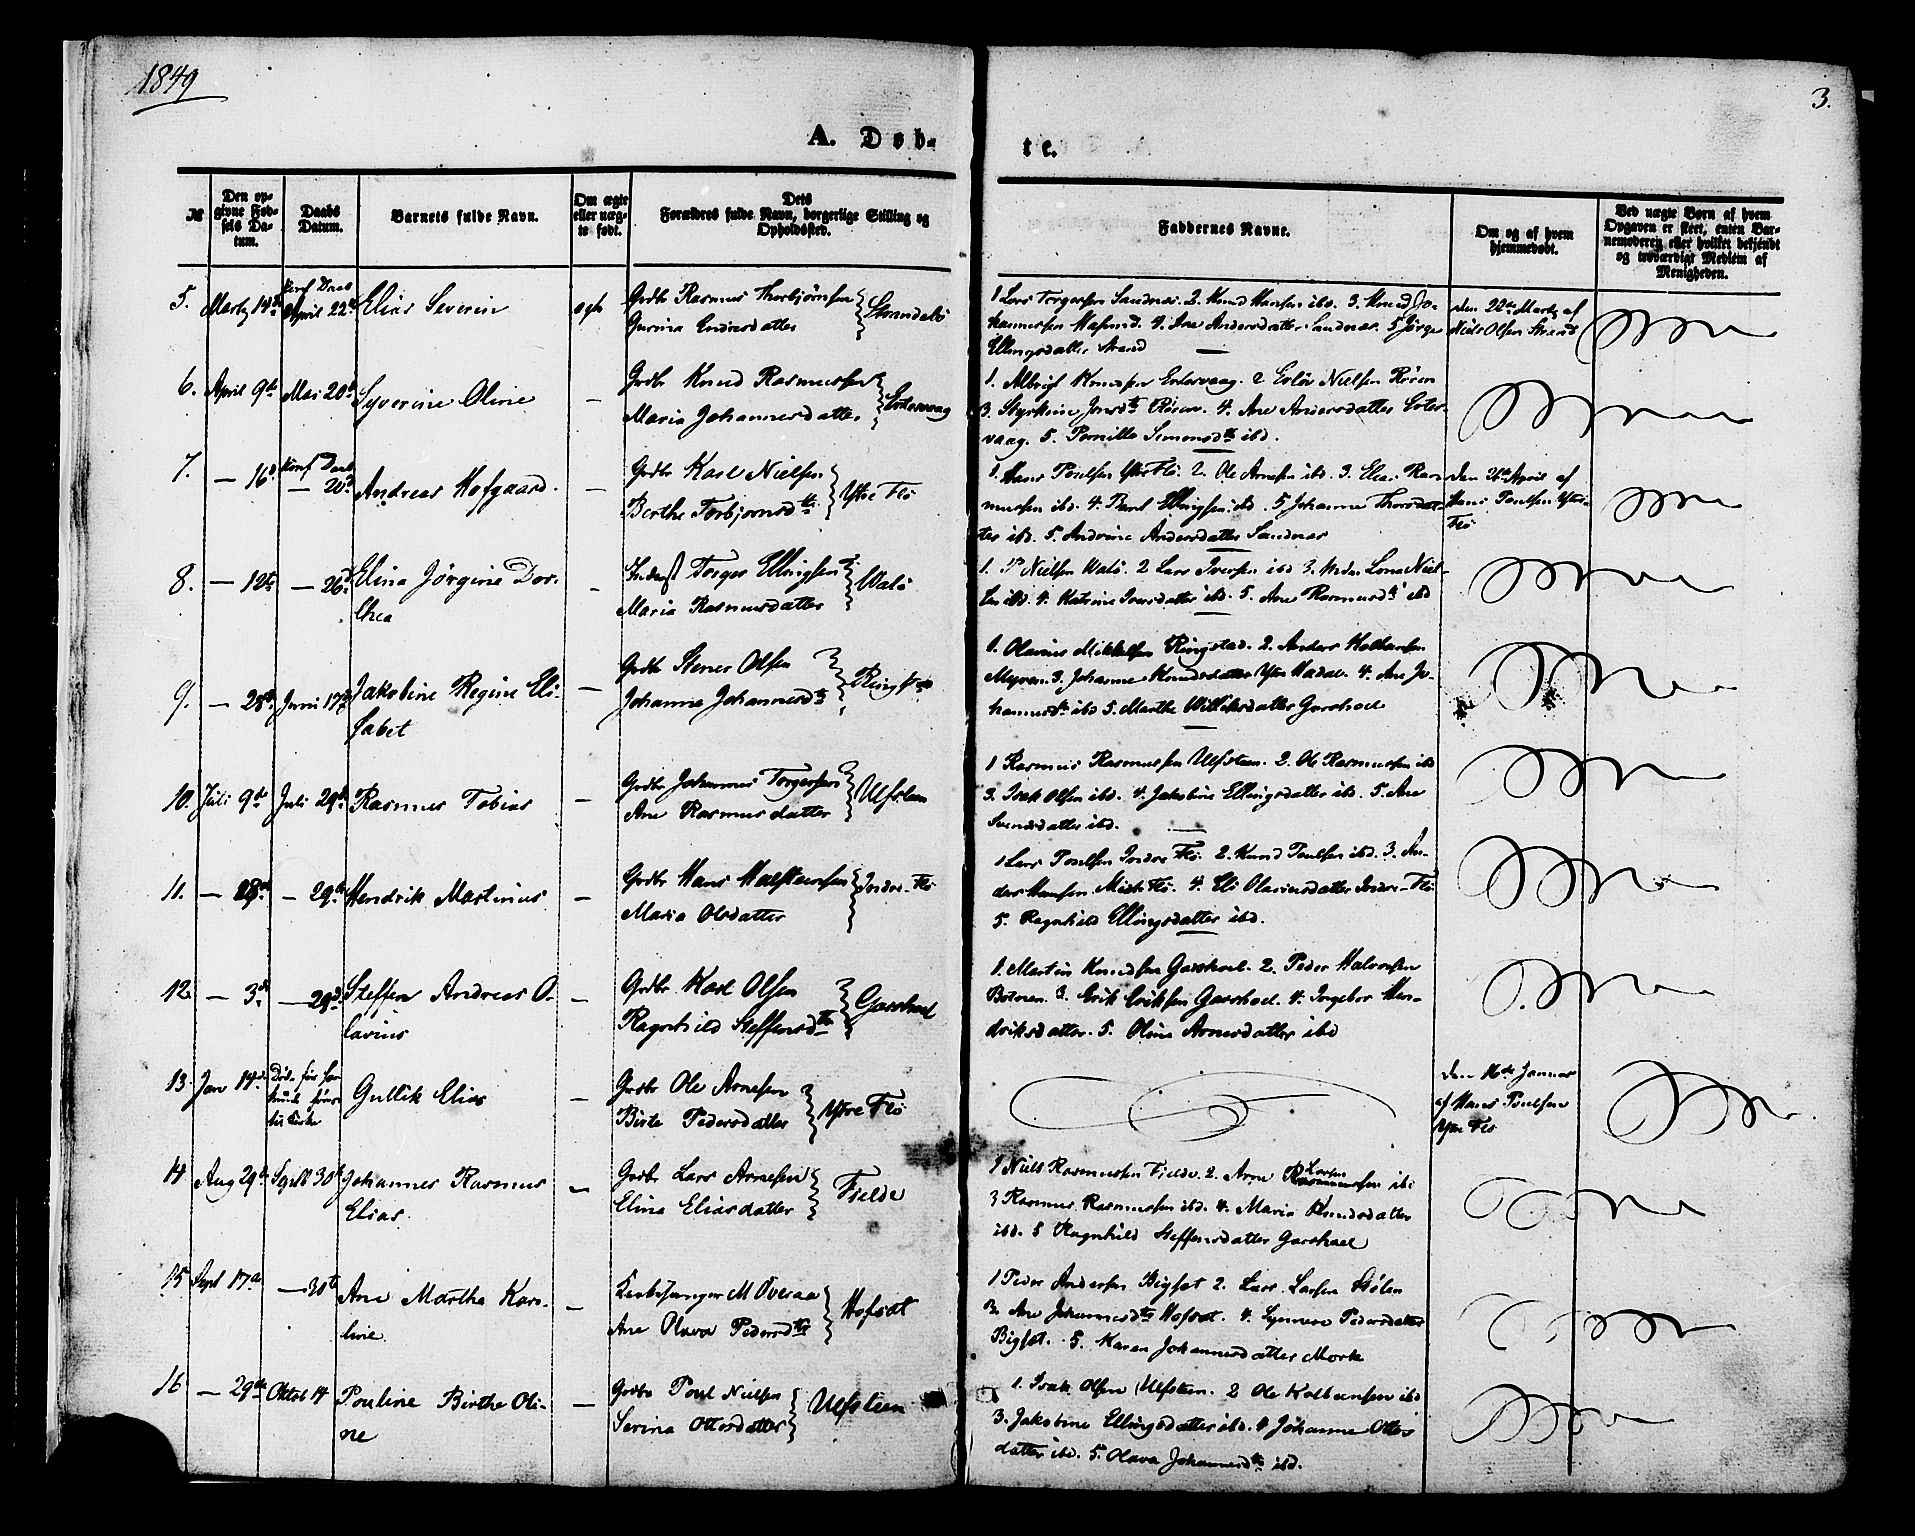 1849
3.
A. Døb-
te.
№
Den op-
givne Fød-
sels Da-
tum.
Daabs
Datum.
Barnets fulde Navn.
Om ægte
eller uæg-
te født.
Dets
Forældres fulde Navn, borgerlige Stilling og
Opholdssted.
Faddernes Navne.
Om og af hvem
hjemmedøbt.
Ved uægte Børn af hvem
Opgaven er skeet, enten Bar-
nemoderen eller hvilket bekjendt
og troværdigt Medlem af
Menigheden.
5. Marty 14de
April 22de
Elias Severin
egte
Grdbr Rasmus Thorbjørnsen
Gurina Endresdatter
Strandabø
1 Lars Torgersen Sandnæs. 2. Knud Hansen ibd. 3. Knud Jo-
hannessen Hasund. 4. Ane Andersdatter Sandnæs. 5 Jørgine
Ellingsdatter Strand
den 20de Marty af
Niels Olsen Strand
6. April 9de Mai 20de
Syverine Oline
—
Grdbr Knud Rasmussen
Maria Johannesdatter
Eetervaag
1. Albrigt Knudsen 2 Nielsen
3. 4. Ane Andersdatter
vaag. 5. Pernille Simonsdtr ibd.
7. — 16de
— 20de
Andreas Hofgaard.
—
Grdbr Karl Nielsen
Berthe Torbjørnsdtr
Ytre Flø
1. Hans Poulsen Ytre Flø. 2. Ole Arnesen ibd. 3. Elias Ras-
mussen ibd. 4. Berel Ellingsen ibd. 5 Johanne Thorsdat-
ter ibd. 5. Andrine Andersdatter Sandnæs
Den 26de April af
Hans Poulsen Ytre-
Flø
8. — 12te — 26de
Elina Jørgine Dor-
thea
—
Inderst Torger Ellingsen
Maria Rasmusdatter
Walø
1. P Nielsen Walø. 2 Lars Iversen ibd 3.
ibd. 4. Katrine Iversdatter ibd. 5. Ane Rasmusdtr ibd
9. — 28de Juni 17de
Jakobine Regine Eli-
sabet
—
Grdbr Stener Olsen
Johanna Johannesdtr
Ringstad
1. Olavius Mikkelsen Ringstad. 2. Anders
Myren. 3. Johanne Knudsdatter Ytre Hadal. 4. Ane Jo-
hannesdtr ibd 5. Marthe Garshoel
10. Juli 9de Juli 29de
Rasmus Tobias
—
Grdbr Johannes Torgersen
Ane Rasmusdatter
Ulfsten
1 Rasmus Rasmussen Ulfsteen. 2. Ole Rasmussen ibd
3. Isak Olsen ibd. 4. Jakobine Ellingsdatter ibd. 5. Ane
Svendsdatter ibd.
11. — 28de — 29de
Hendrik Martinus
—
Grdbr Hans Halstensen
Maria Olsdatter
Indre-Flø
1 Lars Poulsen Indre Flø. 2. Knud Poulsen ibd. 3. An-
ders Hansen Midt Flø. 4. Eli Olaviusdatter Indre-Flø
5. Ragnhild Ellingsdatter ibd.
12. — 3de — 29de
Steffen Andreas O-
lavius
—
Grdbr Karl Olsen
Ragnhild Steffensdtr
Garshoel
1. Martin Knudsen Garshoel. 2. Peder Halvorsen
Botnen. 3. Erik Eriksen Garshoel. 4. Ingebor Hen-
driksdatter. 5. Oline Arnesdatter ibd
13. Jan 14de
Død før
Gullik Elias
—
Grdbr Ole Arnesen
Birte Pedersdatter
Ytre Flø
den 16de Januar
af Hans Poulsen
Ytre Flø
14 Aug 29de Sept 30te
Johannes Rasmus
Elias.
—
Grdbr Lars Arnesen
Elina Eliasdatter
Fjelde
1 Niels Rasmussen Fjelde. 2. Arne Larsen ibd
3 Rasmus Rasmussen ibd. 4. Maria Knudsdatter
ibd. 5 Ragnhild Steffensdatter Garshoel
15 Sept 17de — 30te
Ane Martha Karo-
line.
—
Kirkesanger M Overaa
Ane Olava Pedersdtr
Hofsæt
1 Peder Andersen Bigset 2. Lars Larsen Støleu
3. Ane Johannesdtr Hofsæt. 4. Synneve Pedersdatter
Bigset. 5. Karen Johannesdatter Mork
16 — 29de Oktob 14
Pouline Birthe Oli-
ne
—
Grdbr Poul Nielsen
Serina Ottersdatter
Ulfsteen
1. Isak Olsen Ulfsteen. 2 Ole Kolbensen ibd
3. Jakobine Ellingsdatter ibd. 4 Johanne Otters
datter ibd. 5. Olava Johannesdtr ibd.